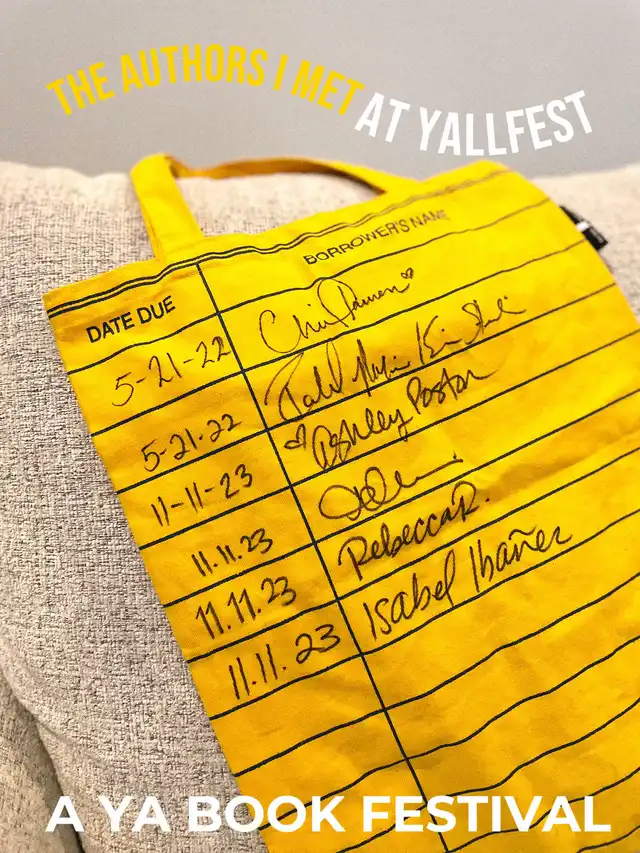 THE AUTHORS I MET AT YALLFEST
DATE DUE BORROWER'S NAME
5-21-22
5-21-22
11-11-23 ashley Poston
11.11.23
11.11.23 RebeccaR.
11.11.23 Isabel Ibañez
A YA BOOK FESTIVAL